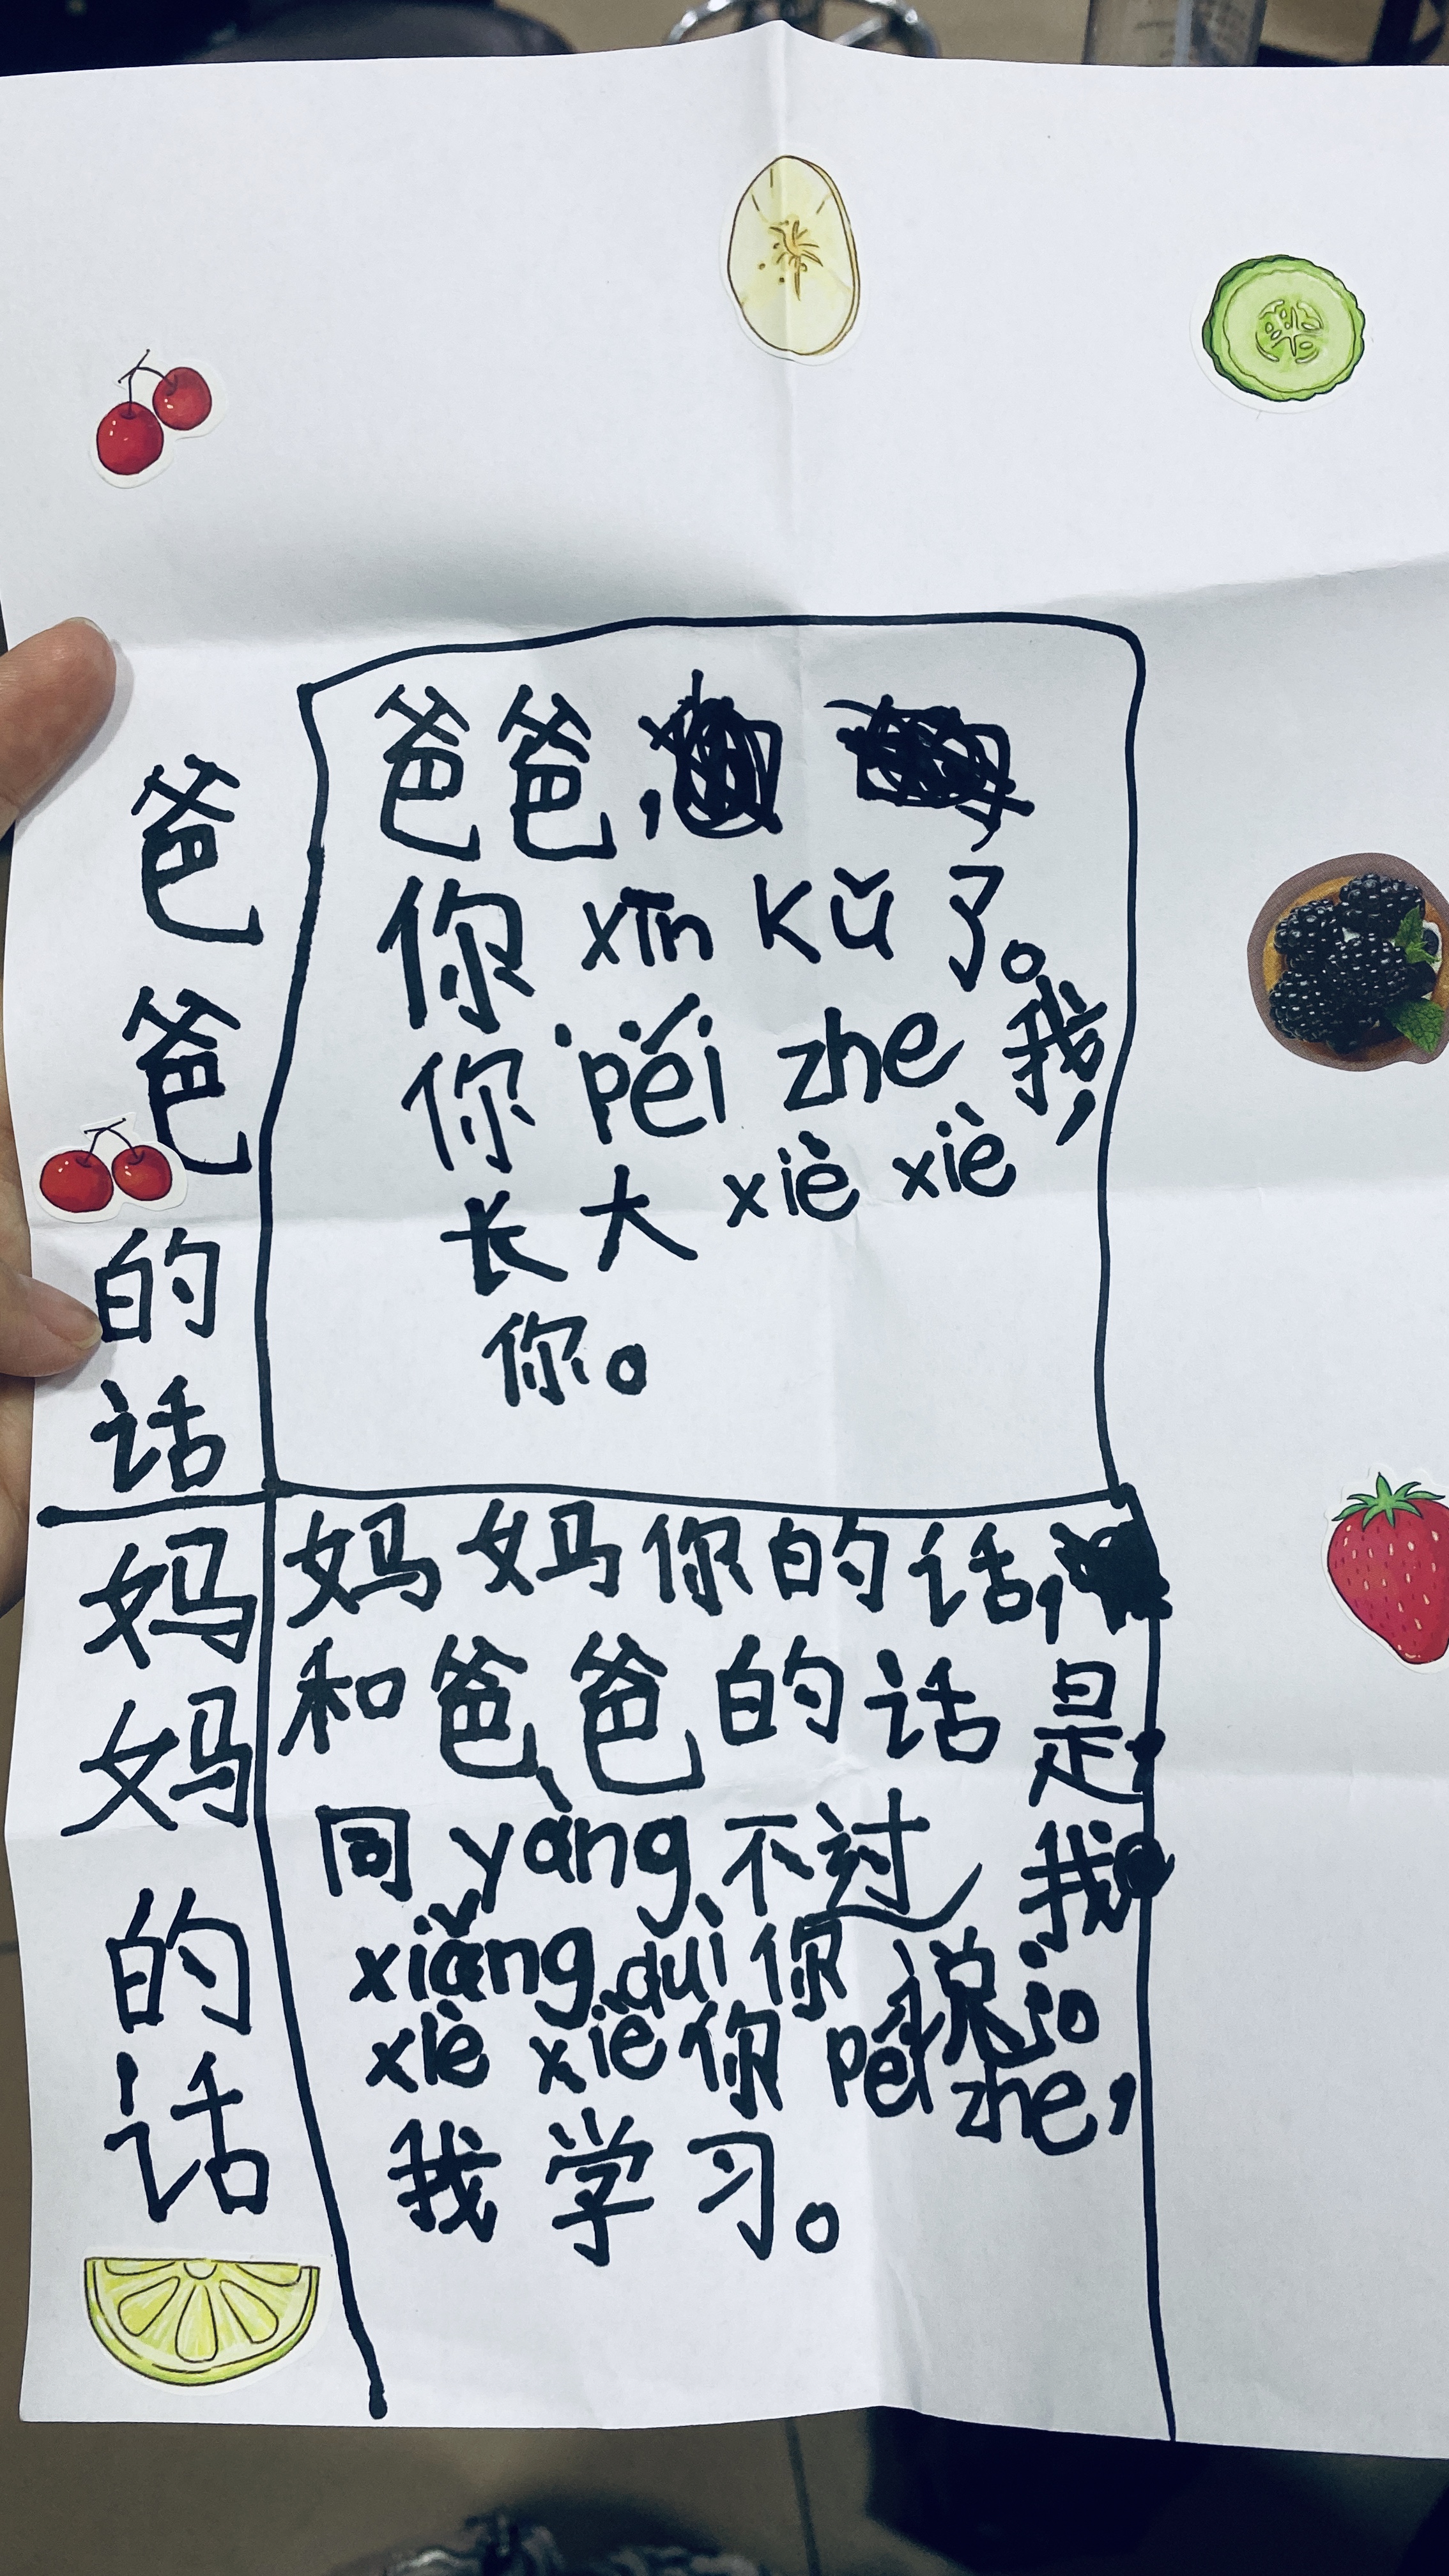 爸爸的话
爸爸,
你 xīn kǔ 了。
你 péi zhe 我,
长大 xiè xiè
你。
妈妈的话
妈妈你的话,
和爸爸的话是
同 yàng 不过我
xiǎng duì 你说
xiè xiè 你 péi zhe,
我学习。